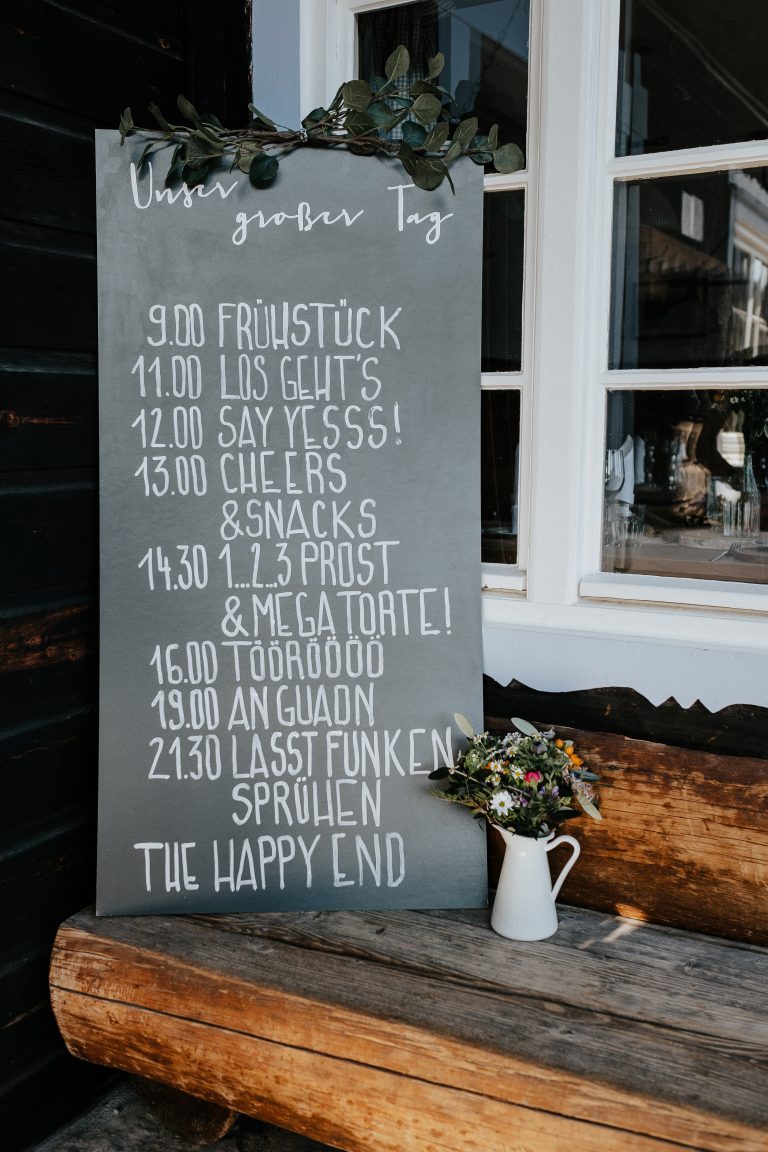 Unser
großer Tag
9.00 FRÜHSTÜCK
11.00 LOS GEHT'S
12.00 SAY YESSS!
13.00 CHEERS
&SNACKS
14.30 1...2...3 PROST
& MEGATORTE!
16.00 TÖÖRÖÖÖÖ
19.00 AN GUADN
21.30 LASST FUNKEN
SPRÜHEN
THE HAPPY END